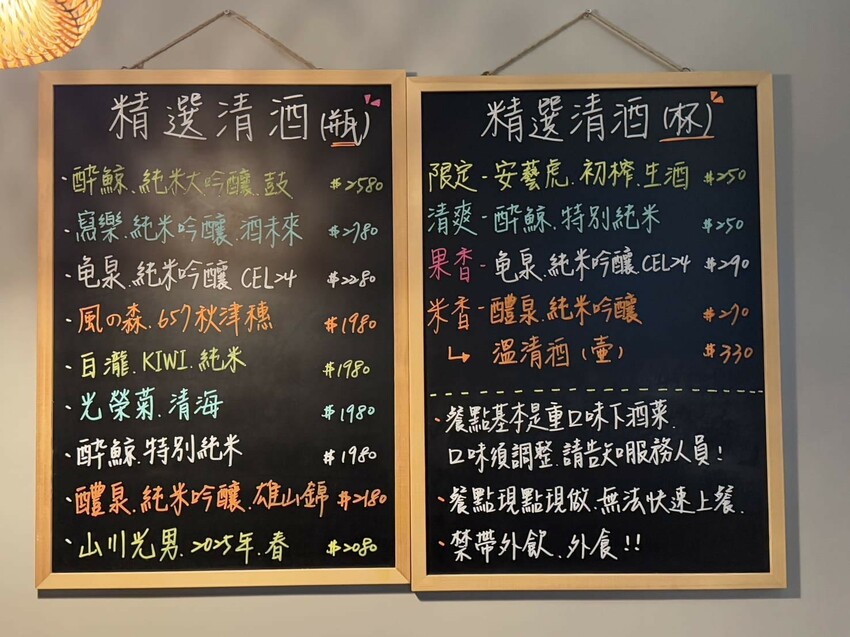 精選清酒(瓶)
·醉鯨.純米大吟釀.鼓 $2580
·寫樂.純米吟釀.酒未來 $2780
·龟泉.純米吟釀 CEL24 $2280
·風の森.657秋津穗 $1980
·白瀧.KIWI.純米 $1980
·光榮菊.清海 $1980
·醉鯨.特別純米 $1980
·醴泉.純米吟釀.雄山錦 $2180
·山川光男.2025年.春 $2080
精選清酒(杯)
限定-安藝虎.初榨.生酒 $250
清爽-醉鯨.特別純米 $250
果香-龟泉.純米吟釀.CEL24 $290
米香-醴泉.純米吟釀 $270
↳ 溫清酒(壺) $330
·餐點基本是重口味下酒菜.
口味須調整.請告知服務人員!
·餐點現點現做.無法快速上餐.
·禁帶外飲.外食!!